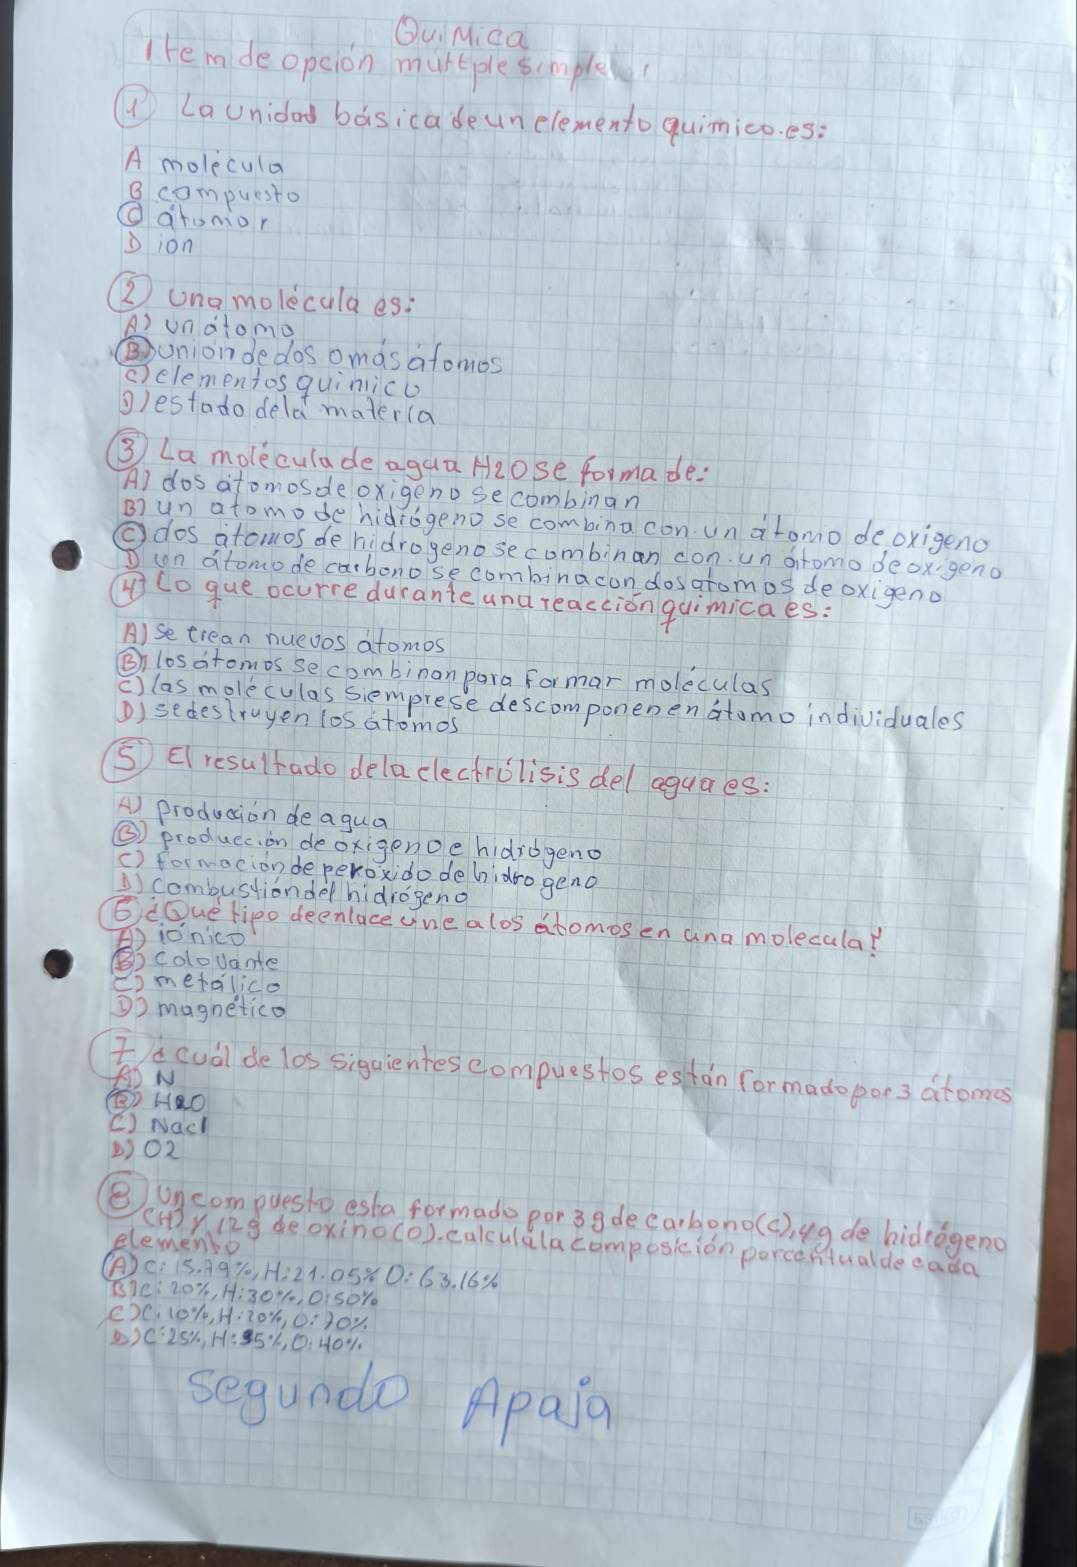 QuiMica
Item de opción multple simple
① La unidad básica de un elemento químico.es:
A molécula
B compuesto
C átomor
D ion
② una molécula es:
A) un átomo
B) unión de dos o más átomos
C) elementos químico
D) estado dela materia
③ La molécula de agua H2O se forma de:
A) dos átomos de oxigeno se combinan
B) un atomo de hidrógeno se combina con un átomo de oxígeno
C) dos átomos de hidrogeno se combinan con un átomo de oxigeno
D un átomo de carbono se combina con dos atomos de oxigeno
④ Lo que ocurre durante una reacción química es:
A) se crean nuevos átomos
B) los átomos se combinan para formar moléculas
C) las moléculas siempre se descomponenen átomo individuales
D) se destruyen los átomos
⑤ El resultado dela electrólisis del agua es:
A) Producción de agua
B) producción de oxigeno e hidrógeno
C) formación de peroxido de hidrogeno
D) combustiondel hidrógeno
⑥ ¿Qué tipo de enlace une a los átomos en una molecula?
A) iónico
B) colovante
C) metálico
D) magnético
7 ¿cuál de los siguientes compuestos están formado por 3 átomos
A) N
B) H2O
C) Nacl
D) O2
⑧ Un compuesto esta formado por 3g de carbono(c), 4g de hidrógeno
(H) y 12g de oxino(o). calculála composición porcentual de cada
elemento
A) C: 15.79%, H: 21.05% O: 63.16%
B) C: 20%, H: 30%, O: 50%
C) C: 10%, H: 20%, O: 70%
D) C: 25%, H: 35%, O: 40%.
segundo Apaja